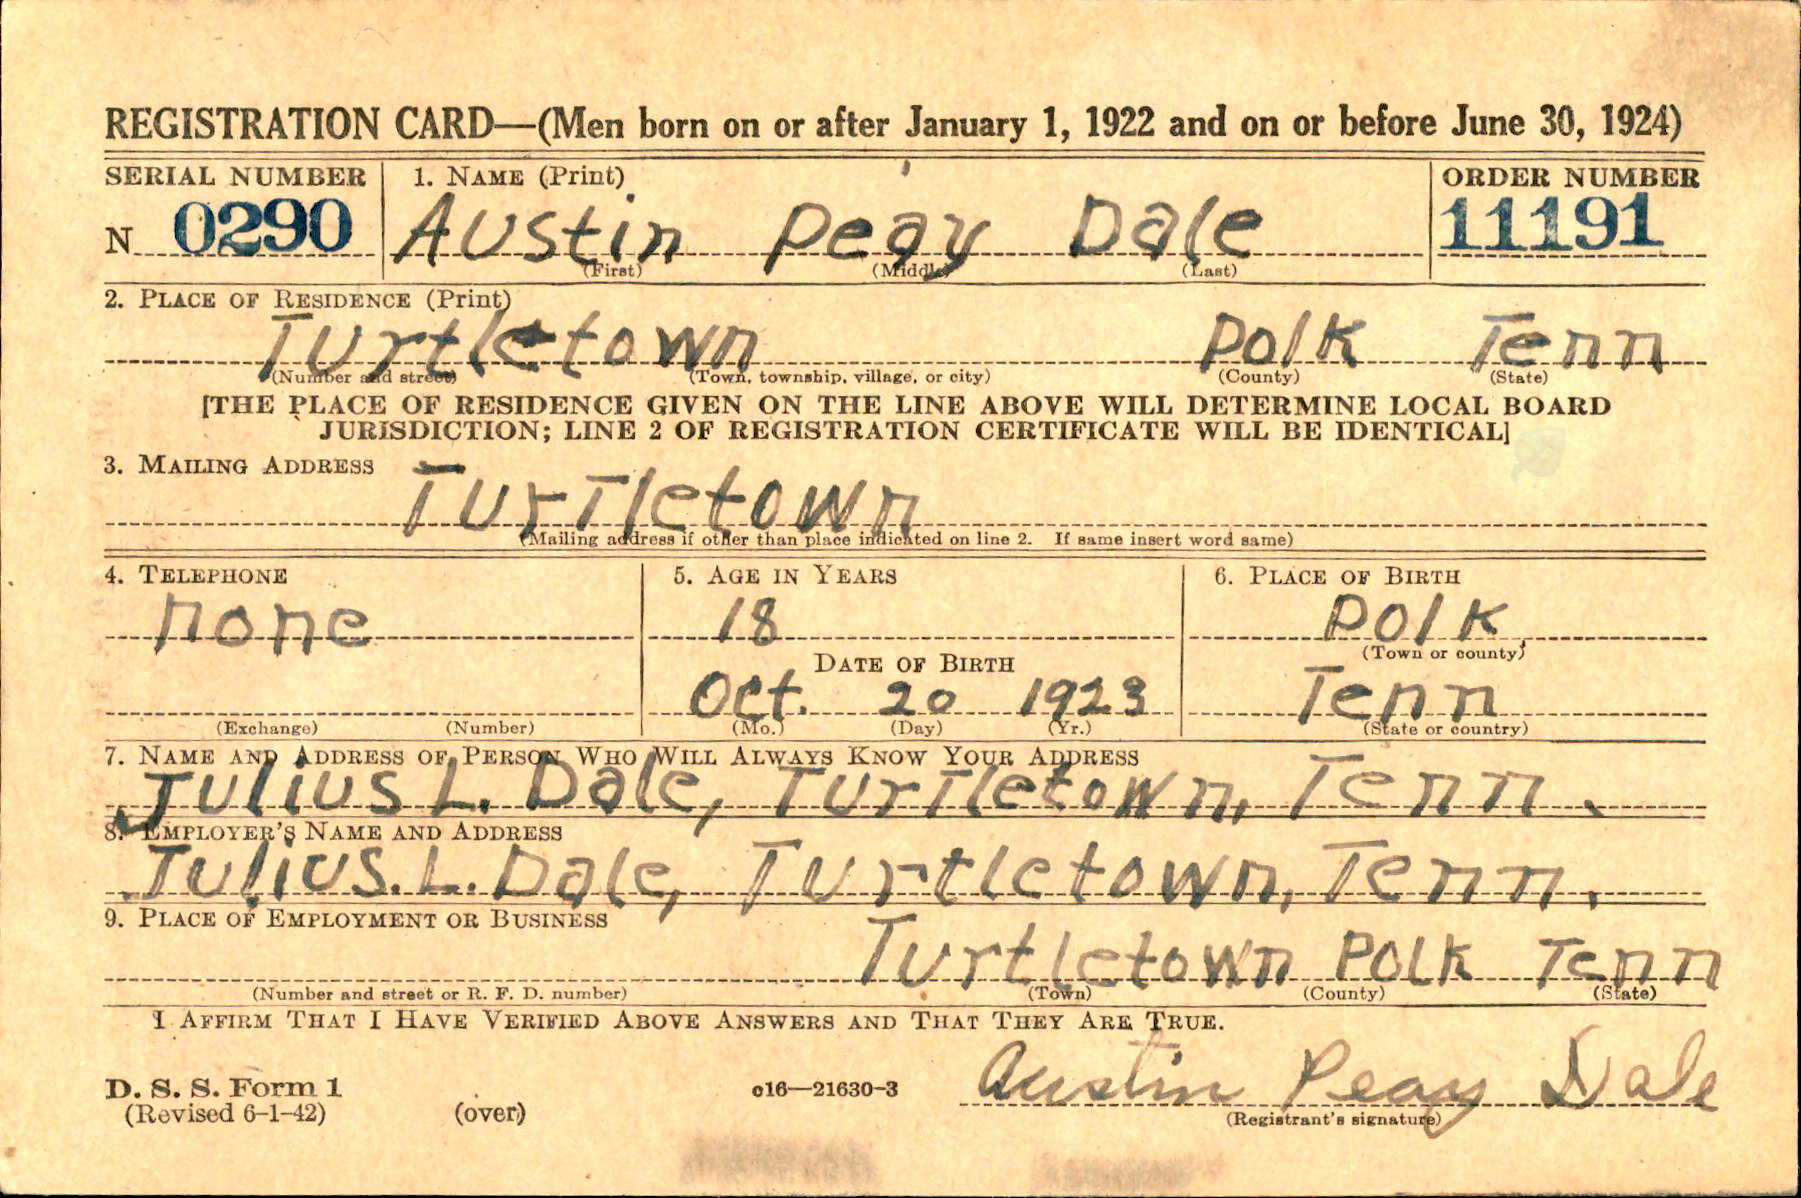 REGISTRATION CARD—(Men born on or after January 1, 1922 and on or before June 30, 1924)
SERIAL NUMBER 1. NAME (Print) ORDER NUMBER
N 0290 Austin Peay Dale 11191
(First) (Middle) (Last)
2. PLACE OF RESIDENCE (Print)
Turtletown Polk Tenn
(Number and street) (Town, township, village, or city) (County) (State)
[THE PLACE OF RESIDENCE GIVEN ON THE LINE ABOVE WILL DETERMINE LOCAL BOARD
JURISDICTION; LINE 2 OF REGISTRATION CERTIFICATE WILL BE IDENTICAL]
3. MAILING ADDRESS
Turtletown
(Mailing address if other than place indicated on line 2. If same insert word same)
4. TELEPHONE 5. AGE IN YEARS 6. PLACE OF BIRTH
none 18 Polk,
(Town or county)
DATE OF BIRTH
Oct. 20 1923 Tenn
(Exchange) (Number) (Mo.) (Day) (Yr.) (State or country)
7. NAME AND ADDRESS OF PERSON WHO WILL ALWAYS KNOW YOUR ADDRESS
Julius L. Dale, Turtletown, Tenn.
8. EMPLOYER'S NAME AND ADDRESS
Julius. L. Dale, Turtletown, Tenn.
9. PLACE OF EMPLOYMENT OR BUSINESS
Turtletown Polk Tenn
(Number and street or R. F. D. number) (Town) (County) (State)
I AFFIRM THAT I HAVE VERIFIED ABOVE ANSWERS AND THAT THEY ARE TRUE.
Austin Peay Dale
D. S. S. Form 1 c16—21630-3
(Revised 6-1-42) (over) (Registrant's signature)